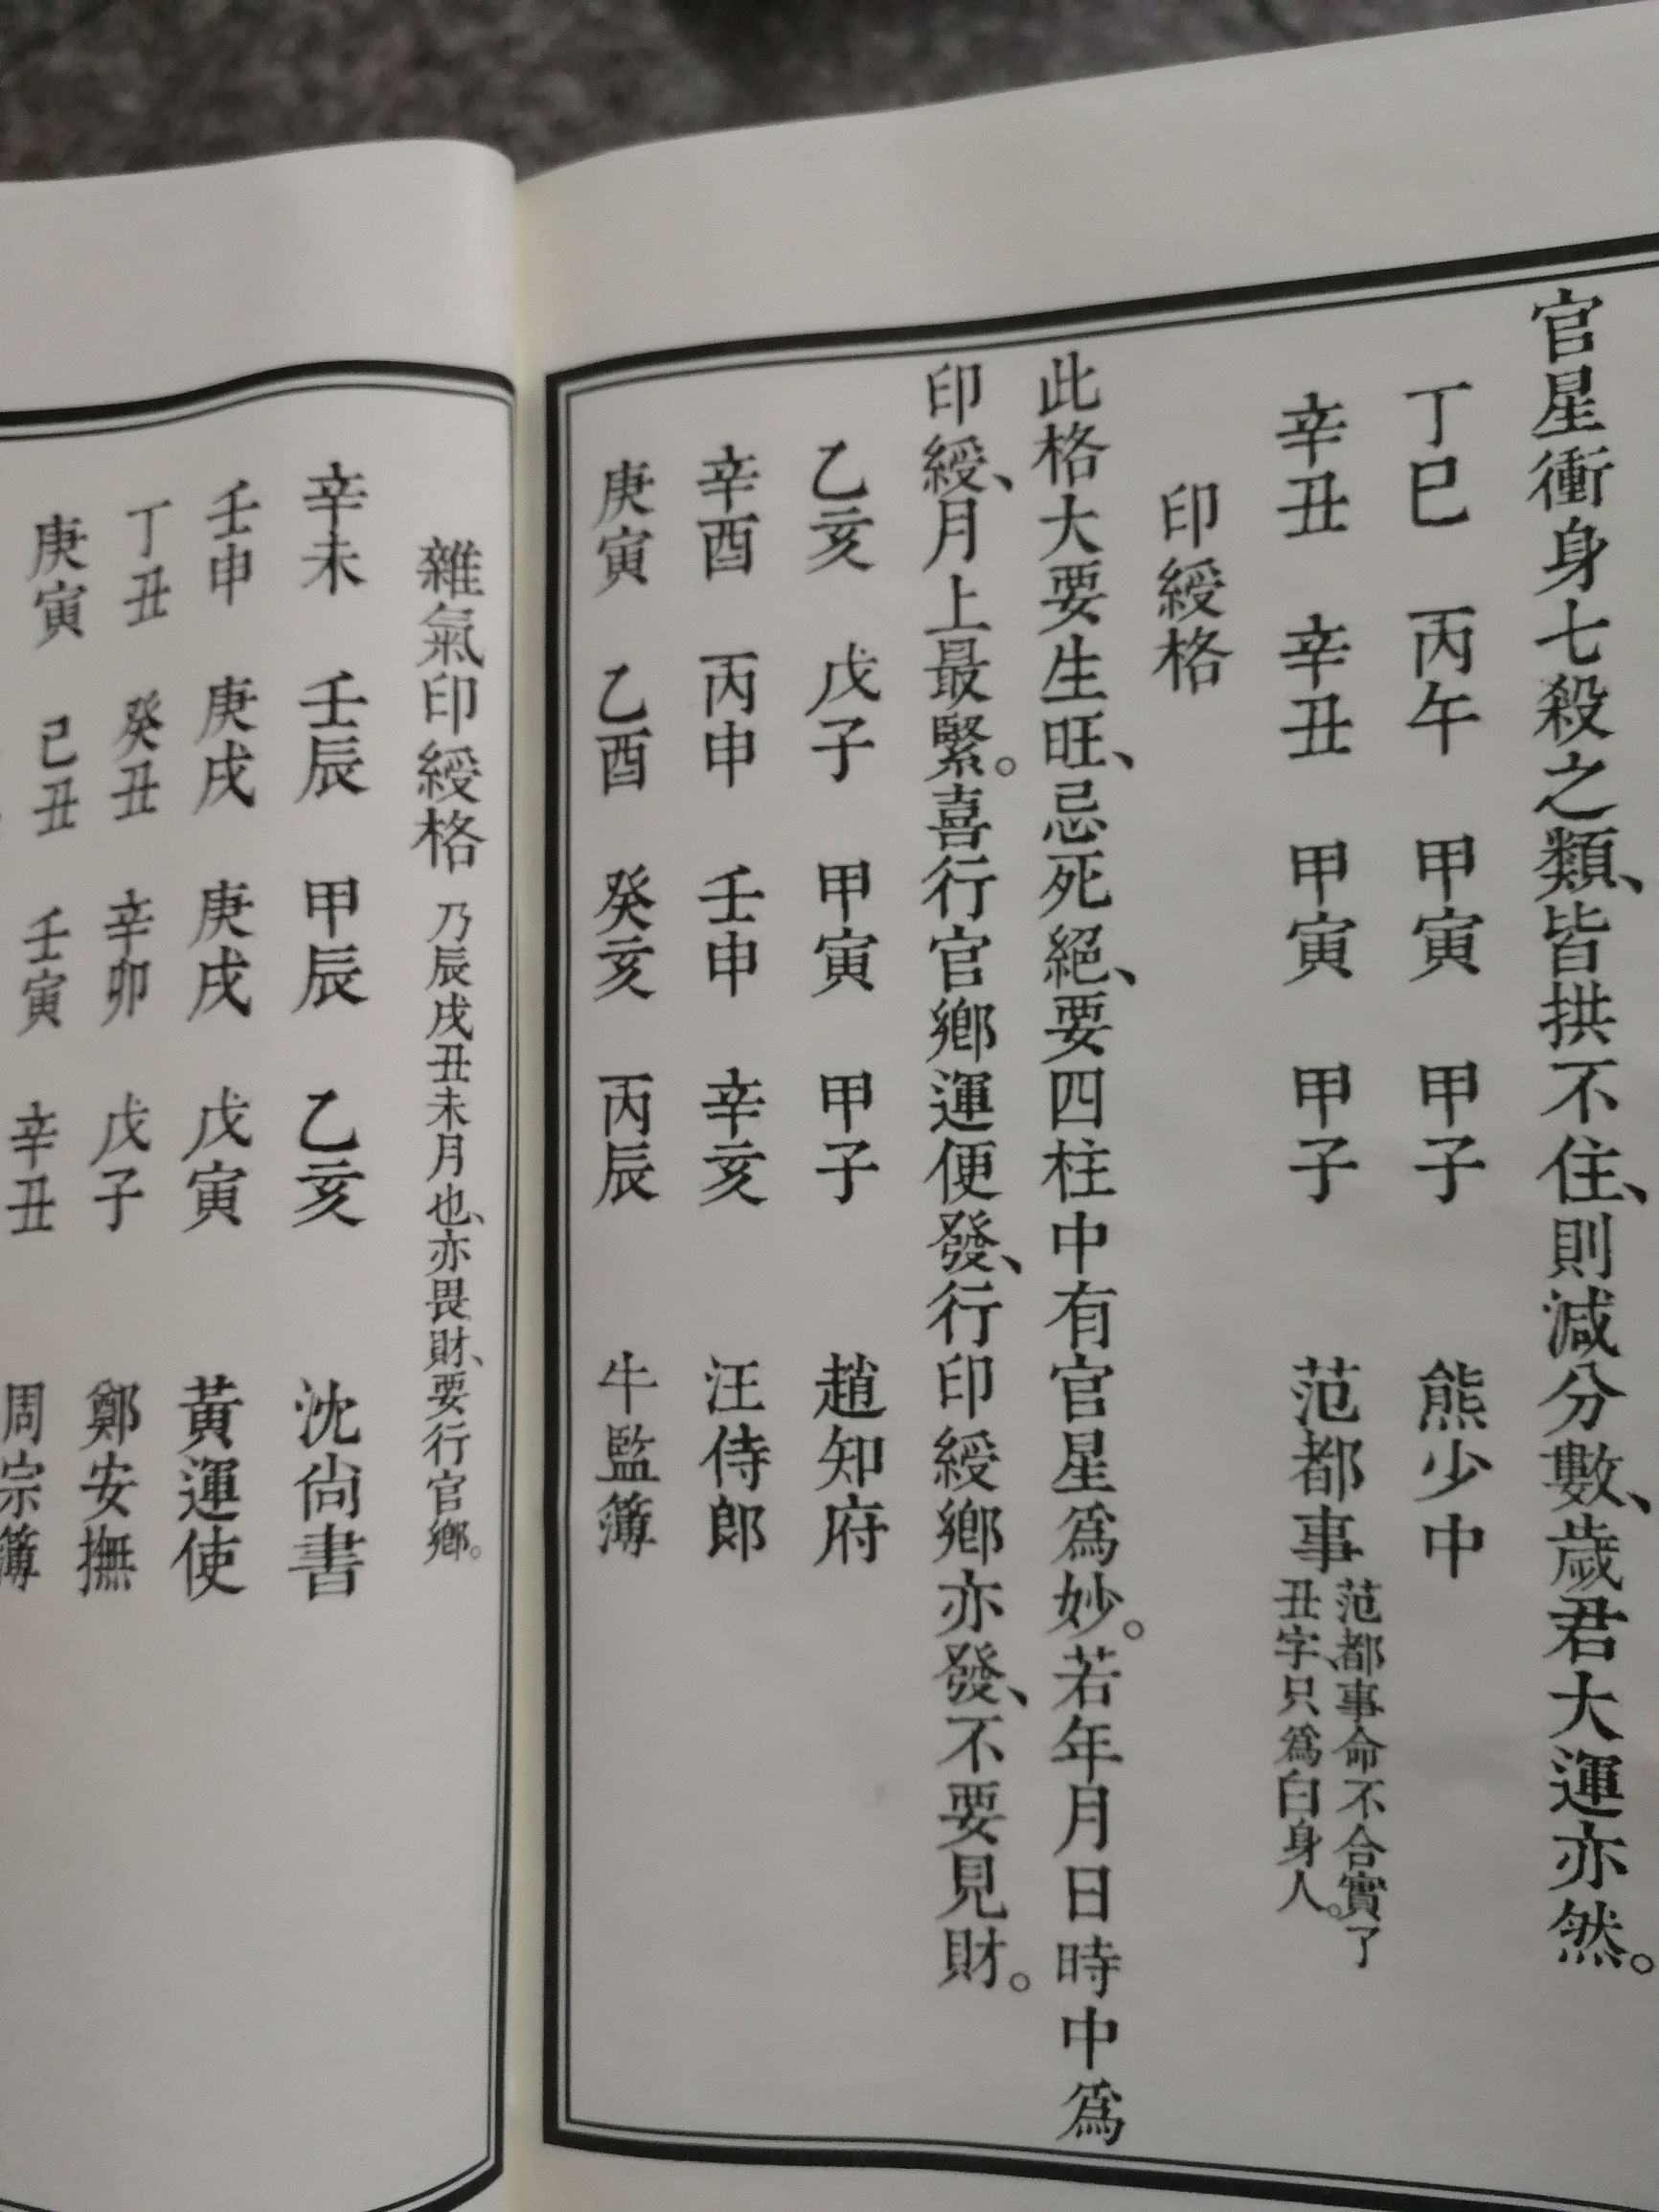 官星衝身七殺之類、皆拱不住、則減分數、歲君大運亦然。
丁巳 丙午 甲寅 甲子 熊少中
辛丑 辛丑 甲寅 甲子 范都事 范都事命不合實了
丑字、只為白身人。
印綬格
此格大要生旺、忌死絕、要四柱中有官星為妙。若年月日時中為
印綬、月上最緊。喜行官鄉運便發、行印綬鄉亦發、不要見財。
乙亥 戊子 甲寅 甲子 趙知府
辛酉 丙申 壬申 辛亥 汪侍郎
庚寅 乙酉 癸亥 丙辰 牛監簿
雜氣印綬格 乃辰戌丑未月也、亦畏財、要行官鄉。
辛未 壬辰 甲辰 乙亥 沈尚書
壬申 庚戌 庚戌 戊寅 黃運使
丁丑 癸丑 辛卯 戊子 鄭安撫
庚寅 己丑 壬寅 辛丑 周宗簿